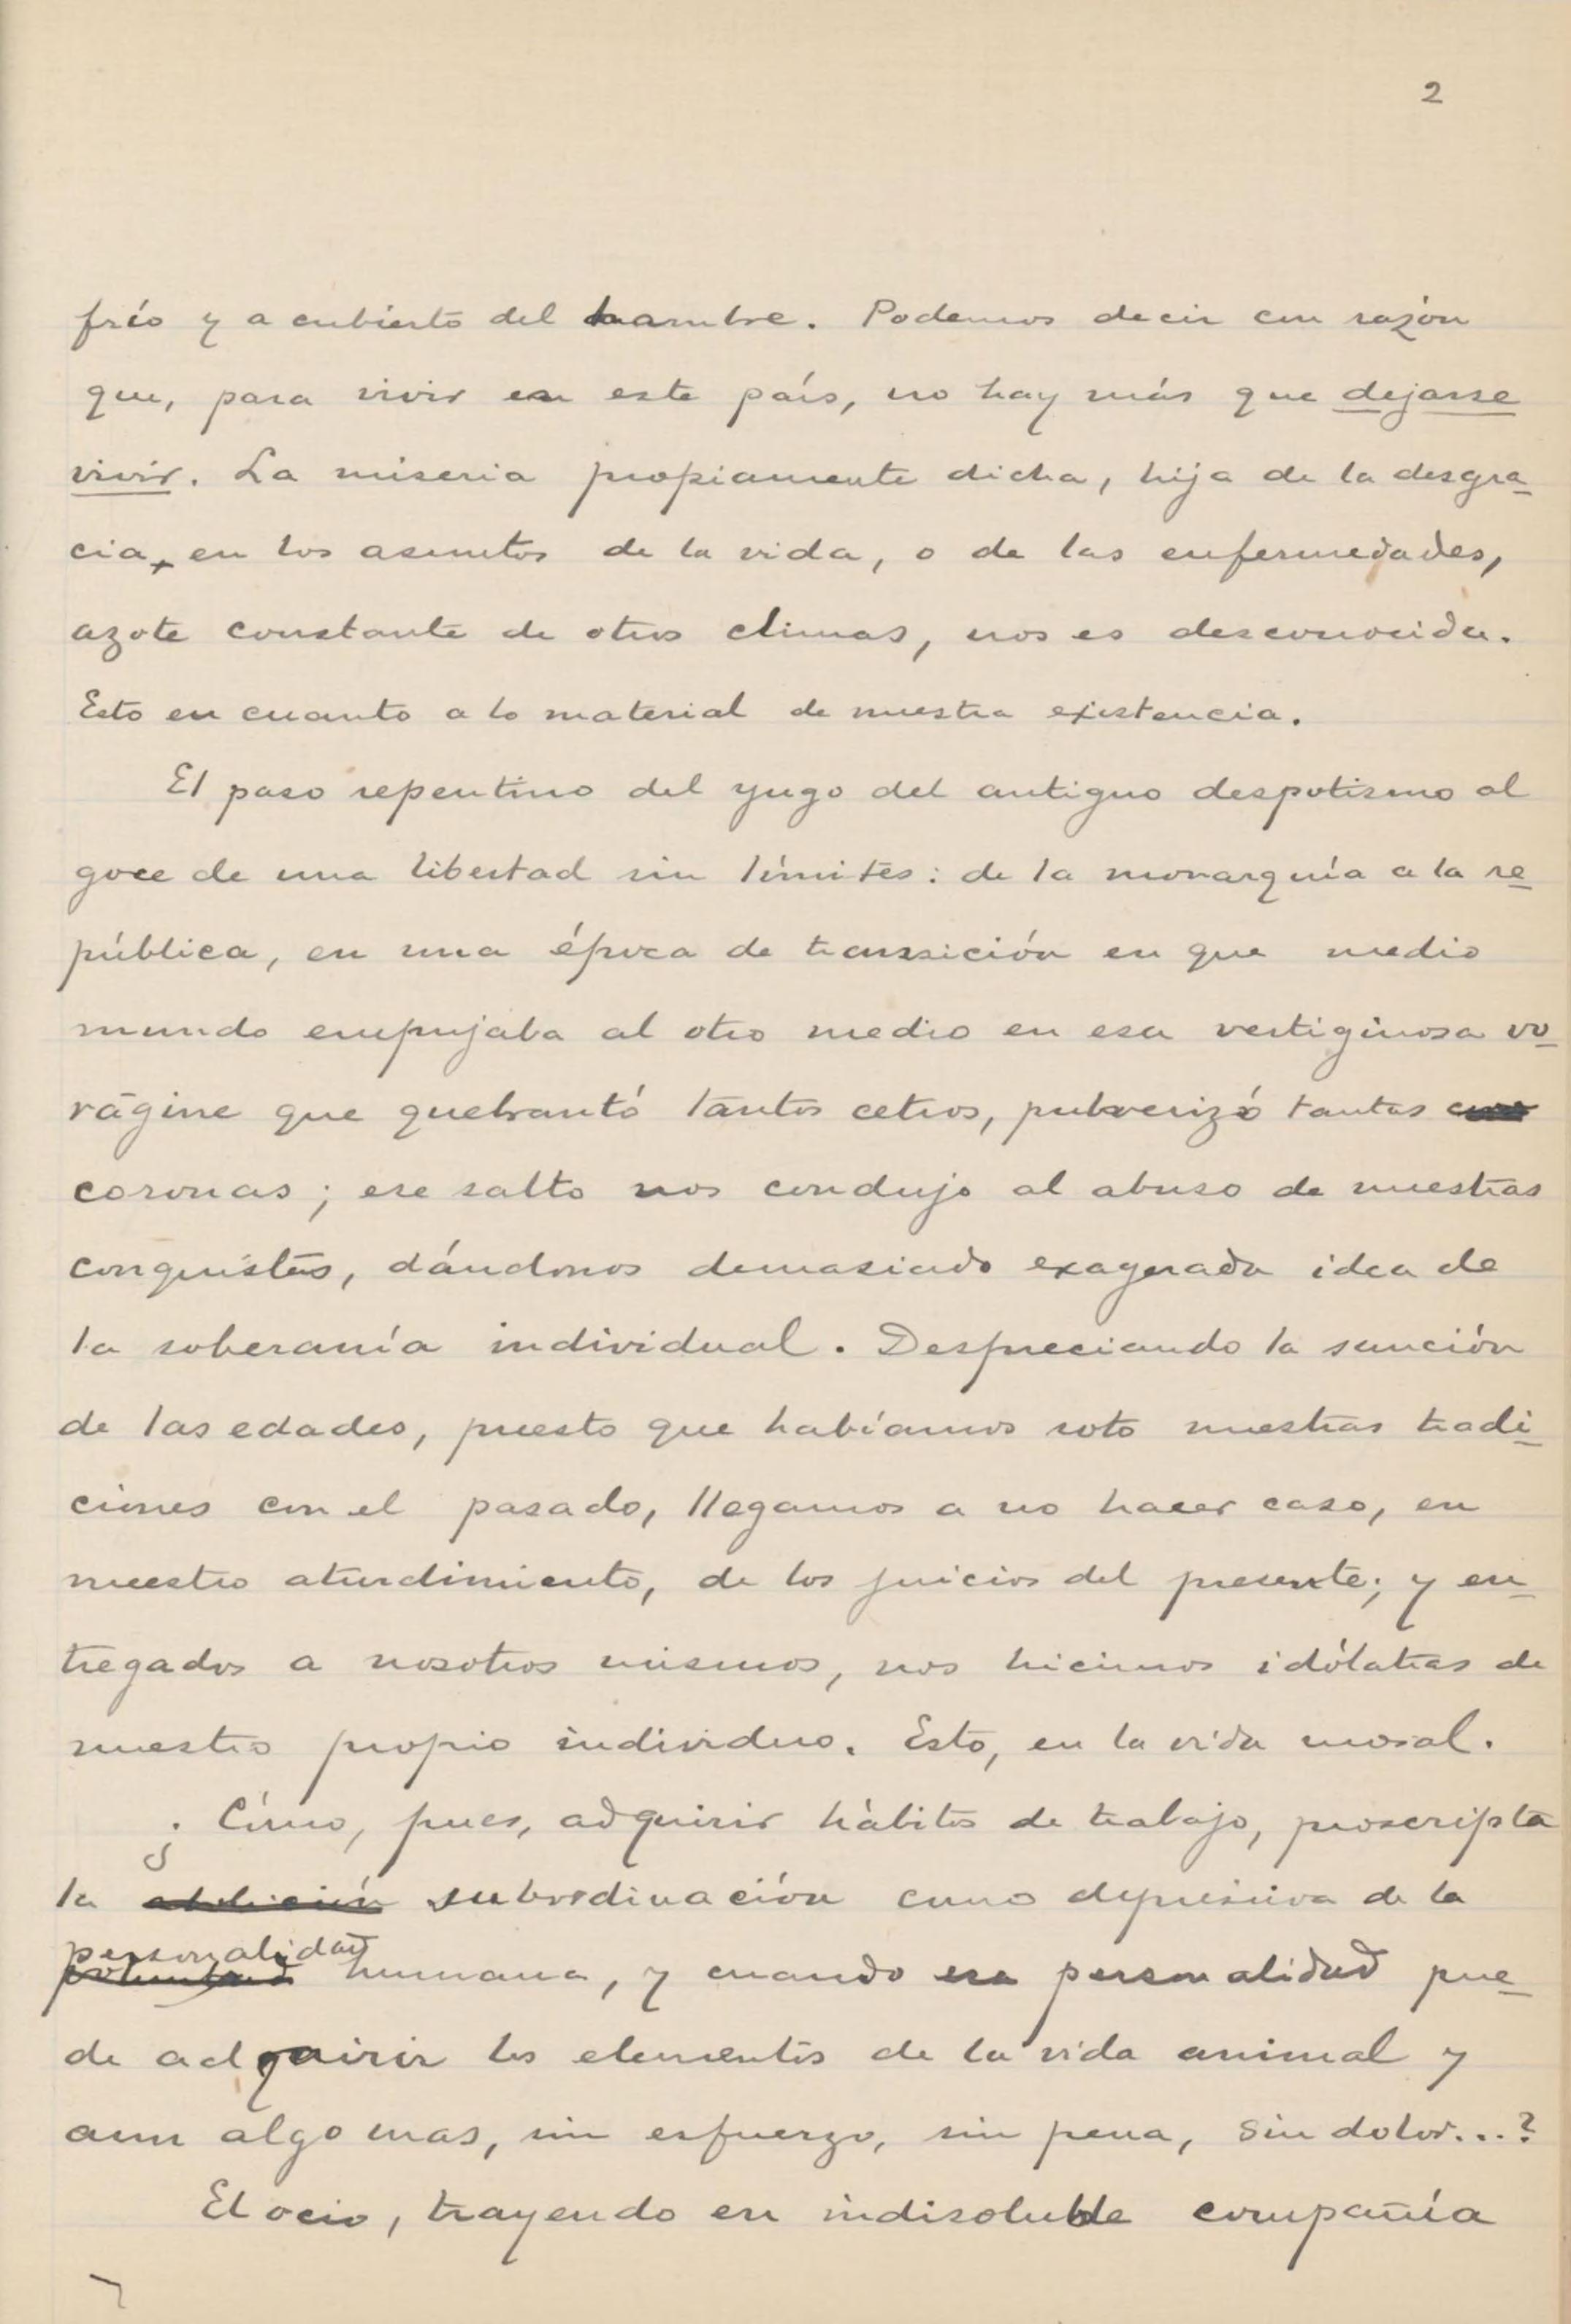 2
frío y a cubierto del hambre. Podemos decir con razón
que, para vivir en este país, no hay más que dejarse
vivir. La miseria propiamente dicha, hija de la desgra-
cia, en los asuntos de la vida, o de las enfermedades,
azote constante de otros climas, nos es desconocida.
Esto en cuanto a lo material de nuestra existencia.
El paso repentino del yugo del antiguo despotismo al
goce de una libertad sin límites: de la monarquía a la re-
pública, en una época de transición en que medio
mundo empujaba al otro medio en esa vertiginosa vo-
rágine que quebrantó tantos cetros, pulverizó tantas
coronas; ese salto nos condujo al abuso de nuestras
conquistas, dándonos demasiado exagerada idea de
la soberanía individual. Despreciando la sanción
de las edades, puesto que habíamos roto nuestras tradi-
ciones con el pasado, llegamos a no hacer caso, en
nuestro aturdimiento, de los juicios del presente; y en-
tregados a nosotros mismos, nos hicimos idólatras de
nuestro propio individuo. Esto, en la vida moral.
¿Cómo, pues, adquirir hábitos de trabajo, proscripta
la subordinación como depresiva de la
personalidad humana, y cuando esa personalidad pue-
de adquirir los elementos de la vida animal y
aun algo mas, sin esfuerzo, sin pena, sin dolor...?
El ocio, trayendo en indisoluble compañía